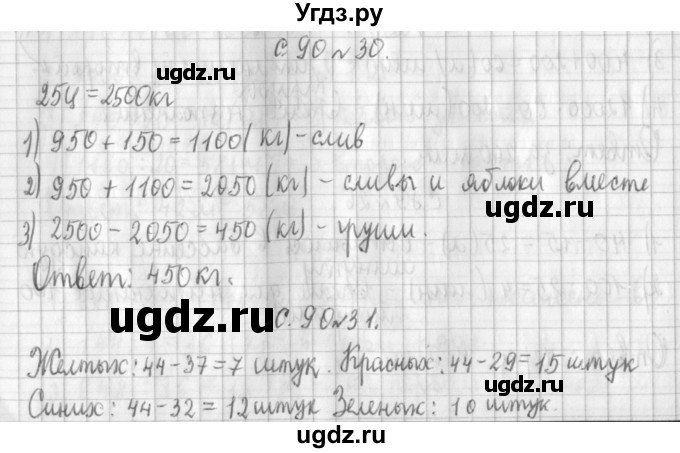 Угдз.ру
с. 90 № 30.
ugdz.ru
ugdz.ru
25ц = 2500кг
1) 950 + 150 = 1100(кг) - слив
ugdz.ru
2) 950 + 1100 = 2050 (кг) - сливы и яблоки вместе
ugdz.ru
3) 2500 - 2050 = 450 (кг) - груши.
Ответ: 450кг.
ugdz.ru
ugdz.ru
с. 90 № 31.
Желтых: 44 - 37 = 7 штук. Красных: 44 - 29 = 15 штук
Синих: 44 - 32 = 12 штук Зеленых: 10 штук.
ugdz.ru